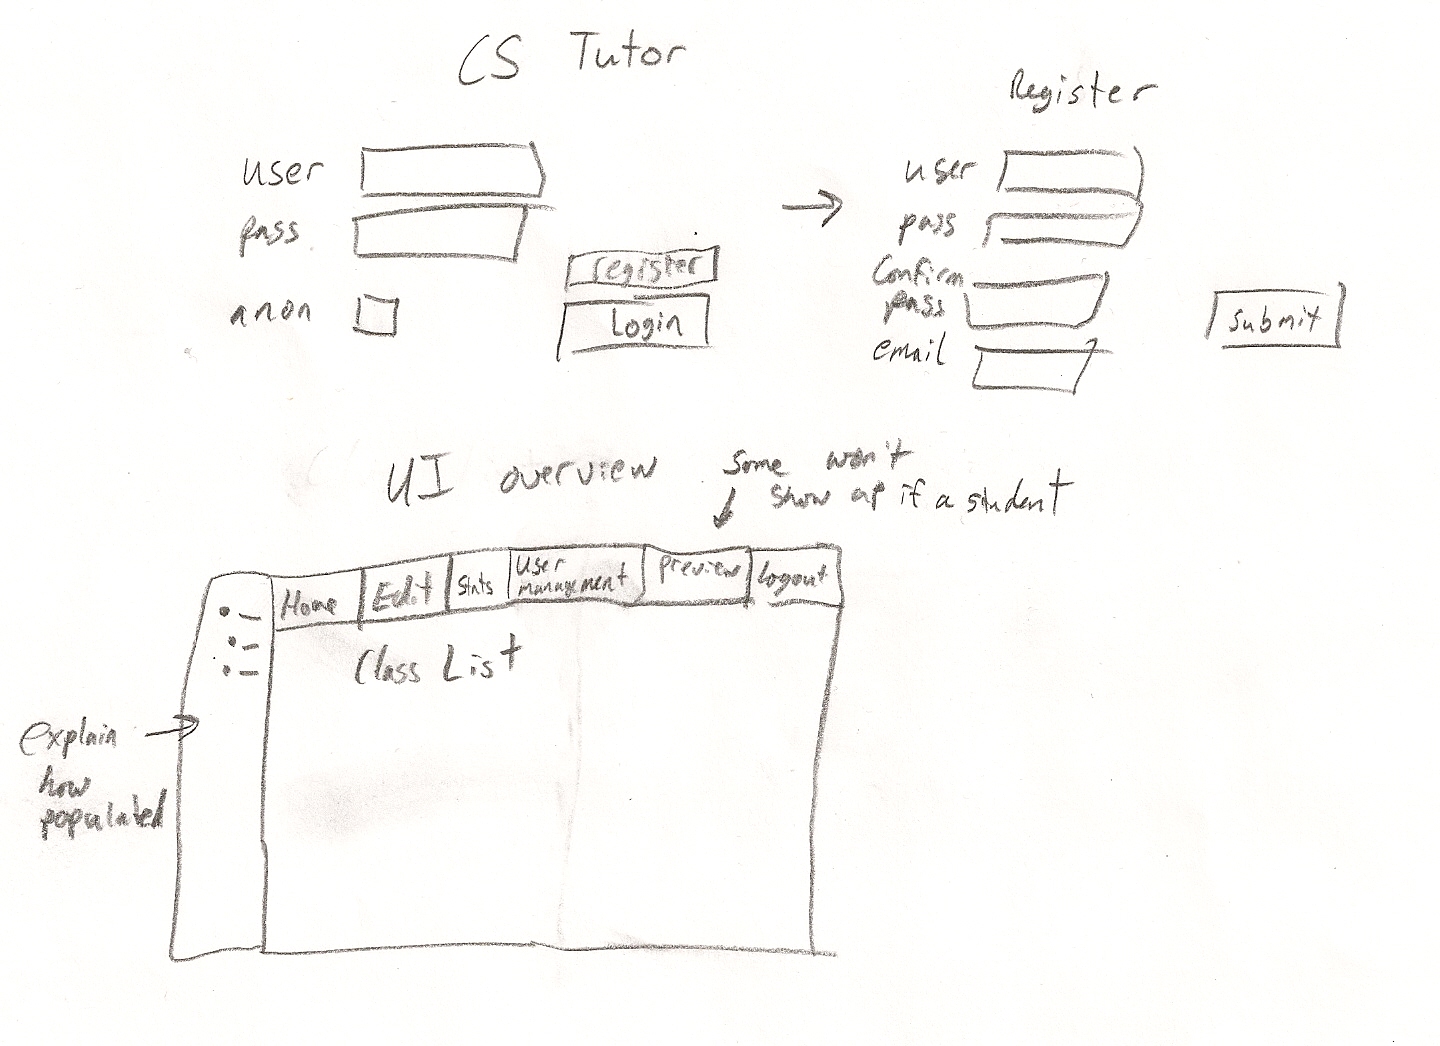 CS Tutor
user
pass
anon
register
Login
Register
user
pass
Confirm
pass
email
Submit
UI overview
Some won't
show up if a student
Home
Edit
Stats
User
management
preview
Logout
Class List
explain
how
populated